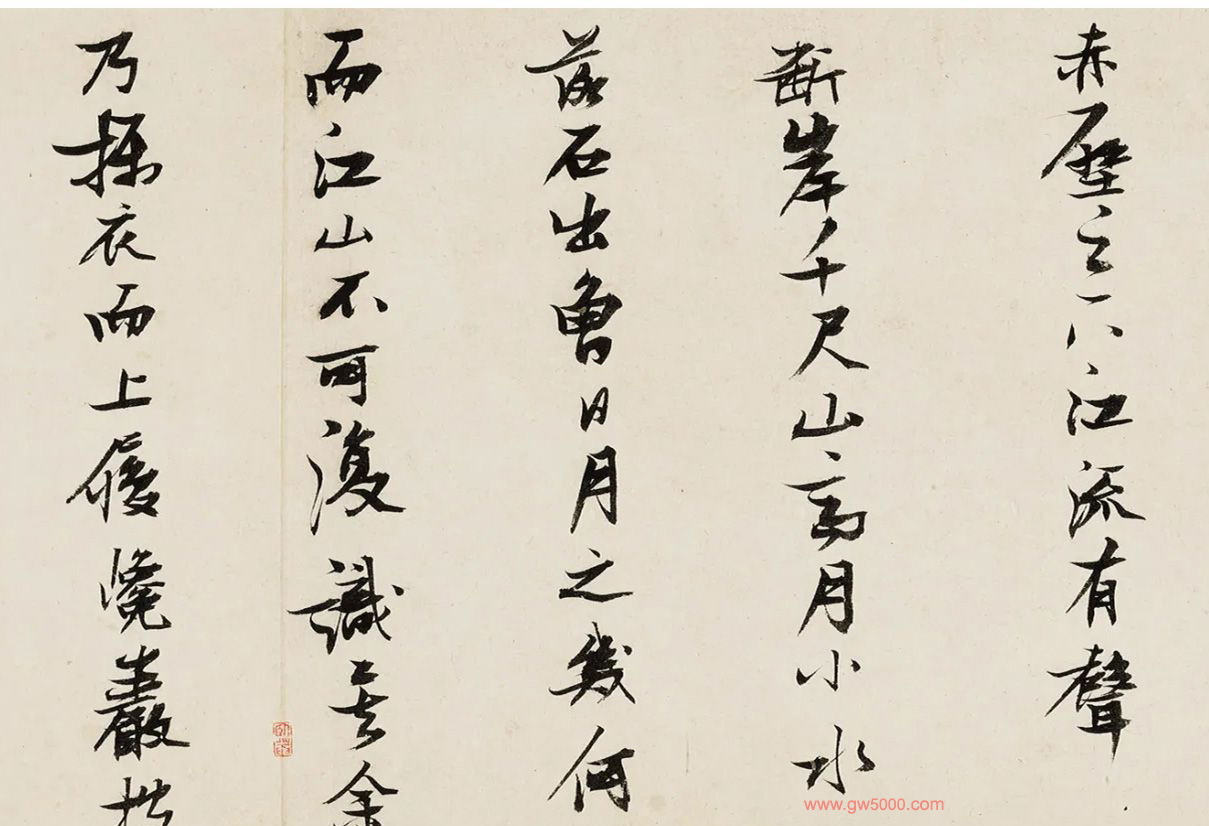 赤壁之下江流有聲
斷岸千尺山高月小水
落石出曾日月之幾何
而江山不可復識矣余
乃攝衣而上履巉巖
www.gw5000.com